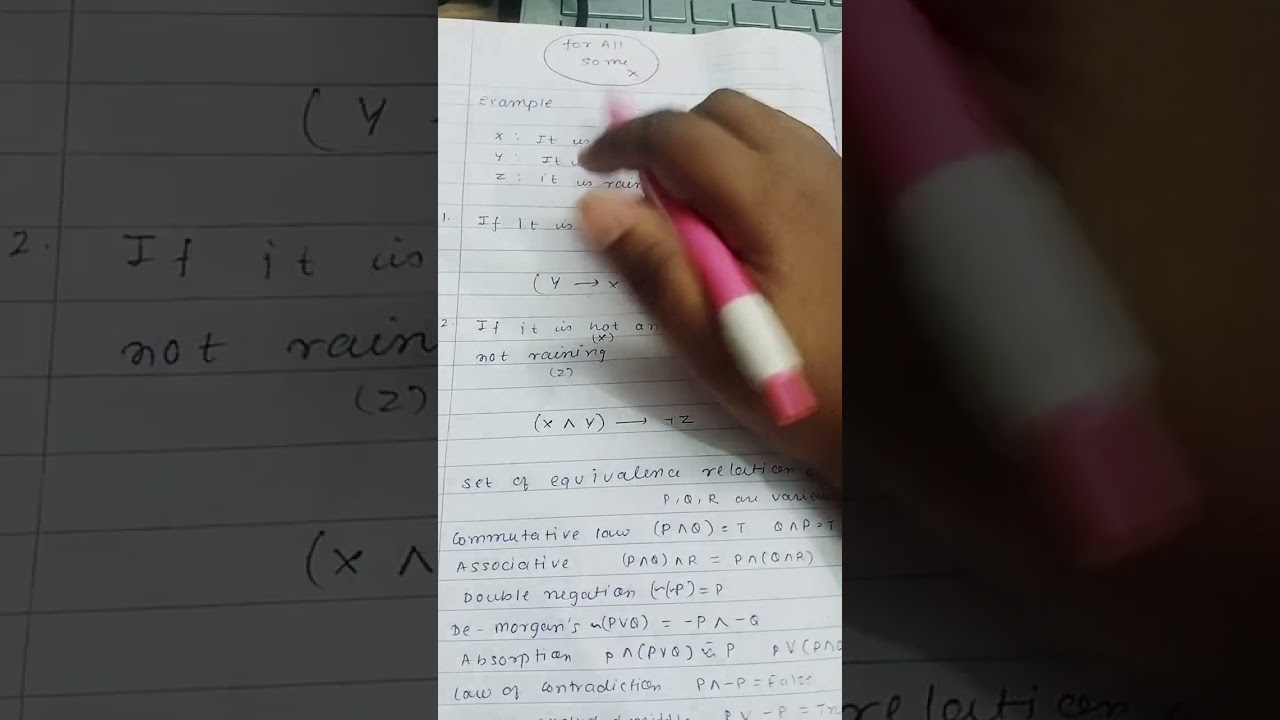 for All
some x
example
X : It is
Y : It
Z : it is rain
1. If It is
(Y → X
2. If it is not an
(X)
not raining
(Z)
(X ∧ Y) → ¬Z
set of equivalence relation
P, Q, R are
Commutative law (P∧Q) = T Q∧P = T
Associative (P∧Q)∧R = P∧(Q∧R)
Double negation (~(~P) = P
De-morgan's ~(PVQ) = -P ∧ -Q
Absorption P∧(PVQ) P PV(P∧Q
Law of contradiction P∧-P = false
PV-P =
(Y
2. If it is
not rain
(Z)
(X ∧
relation